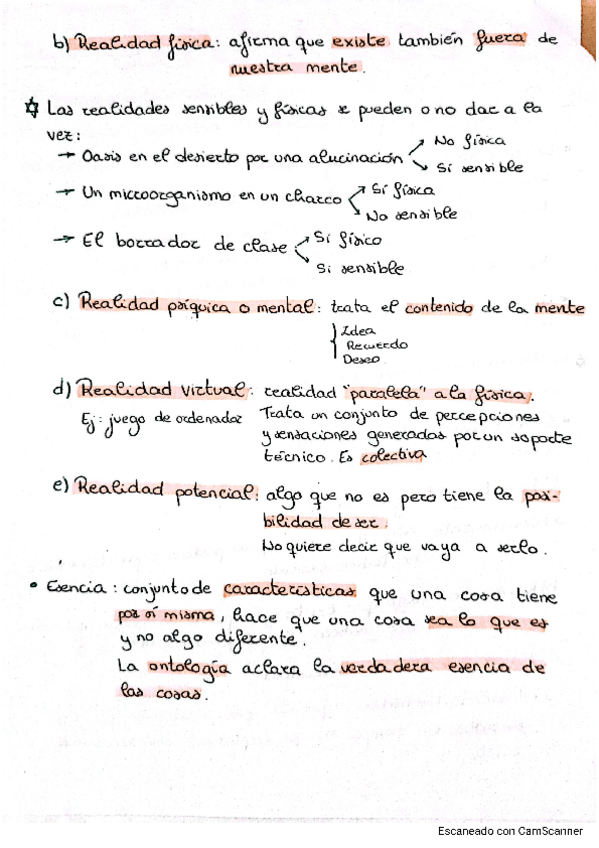 b) Realidad física: afirma que existe también fuera de
nuestra mente.
Las realidades sensibles y físicas se pueden o no dar a la
vez:
→ Oasis en el desierto por una alucinación ↗ No física
↘ Sí sensible
→ Un microorganismo en un charco ↗ Sí física
↘ No sensible
→ El borrador de clase ↗ Sí físico
↘ Sí sensible
c) Realidad psíquica o mental: trata el contenido de la mente
Idea
Recuerdo
Deseo
d) Realidad virtual: realidad "paralela" a la física.
Ej: juego de ordenador Trata un conjunto de percepciones
y sensaciones generadas por un soporte
técnico. Es colectiva
e) Realidad potencial: algo que no es pero tiene la posi-
bilidad de ser.
No quiere decir que vaya a serlo.
• Esencia: conjunto de características que una cosa tiene
por sí misma, hace que una cosa sea lo que es
y no algo diferente.
La ontología aclara la verdadera esencia de
las cosas.
Escaneado con CamScanner